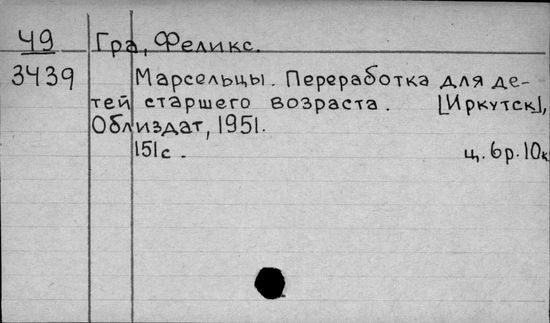 49 Гра, Феликс.
3439 Марсельцы. Переработка для де-
тей старшего возраста. [Иркутск],
Облиздат, 1951.
151с. ц. 6р. 10к